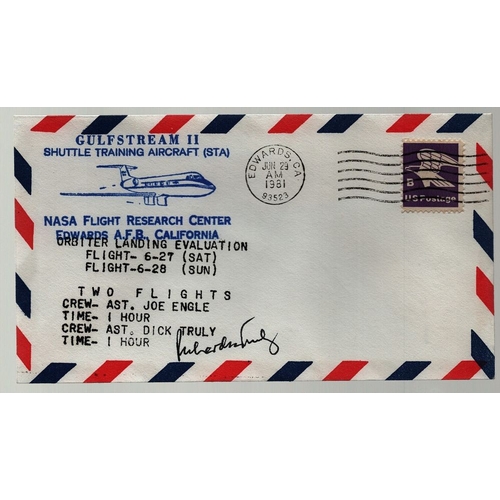 GULFSTREAM II
SHUTTLE TRAINING AIRCRAFT (STA)
NASA FLIGHT RESEARCH CENTER
EDWARDS A.F.B. CALIFORNIA
ORBITER LANDING EVALUATION
FLIGHT- 6-27 (SAT)
FLIGHT-6-28 (SUN)
TWO FLIGHTS
CREW- AST. JOE ENGLE
TIME- 1 HOUR
CREW- AST. DICK TRULY
TIME- 1 HOUR
Richard Truly
EDWARDS, CA
JUN 29
AM
1981
93523
B
US Postage